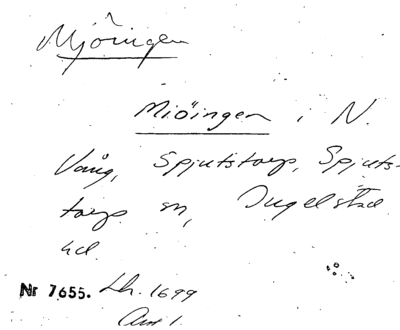 Mjöingen
Miöingen i N.
Vång, Spjutstorp, Spjuts-
torps sn, Ingelstad
hd
Nr 7655. Lh. 1699